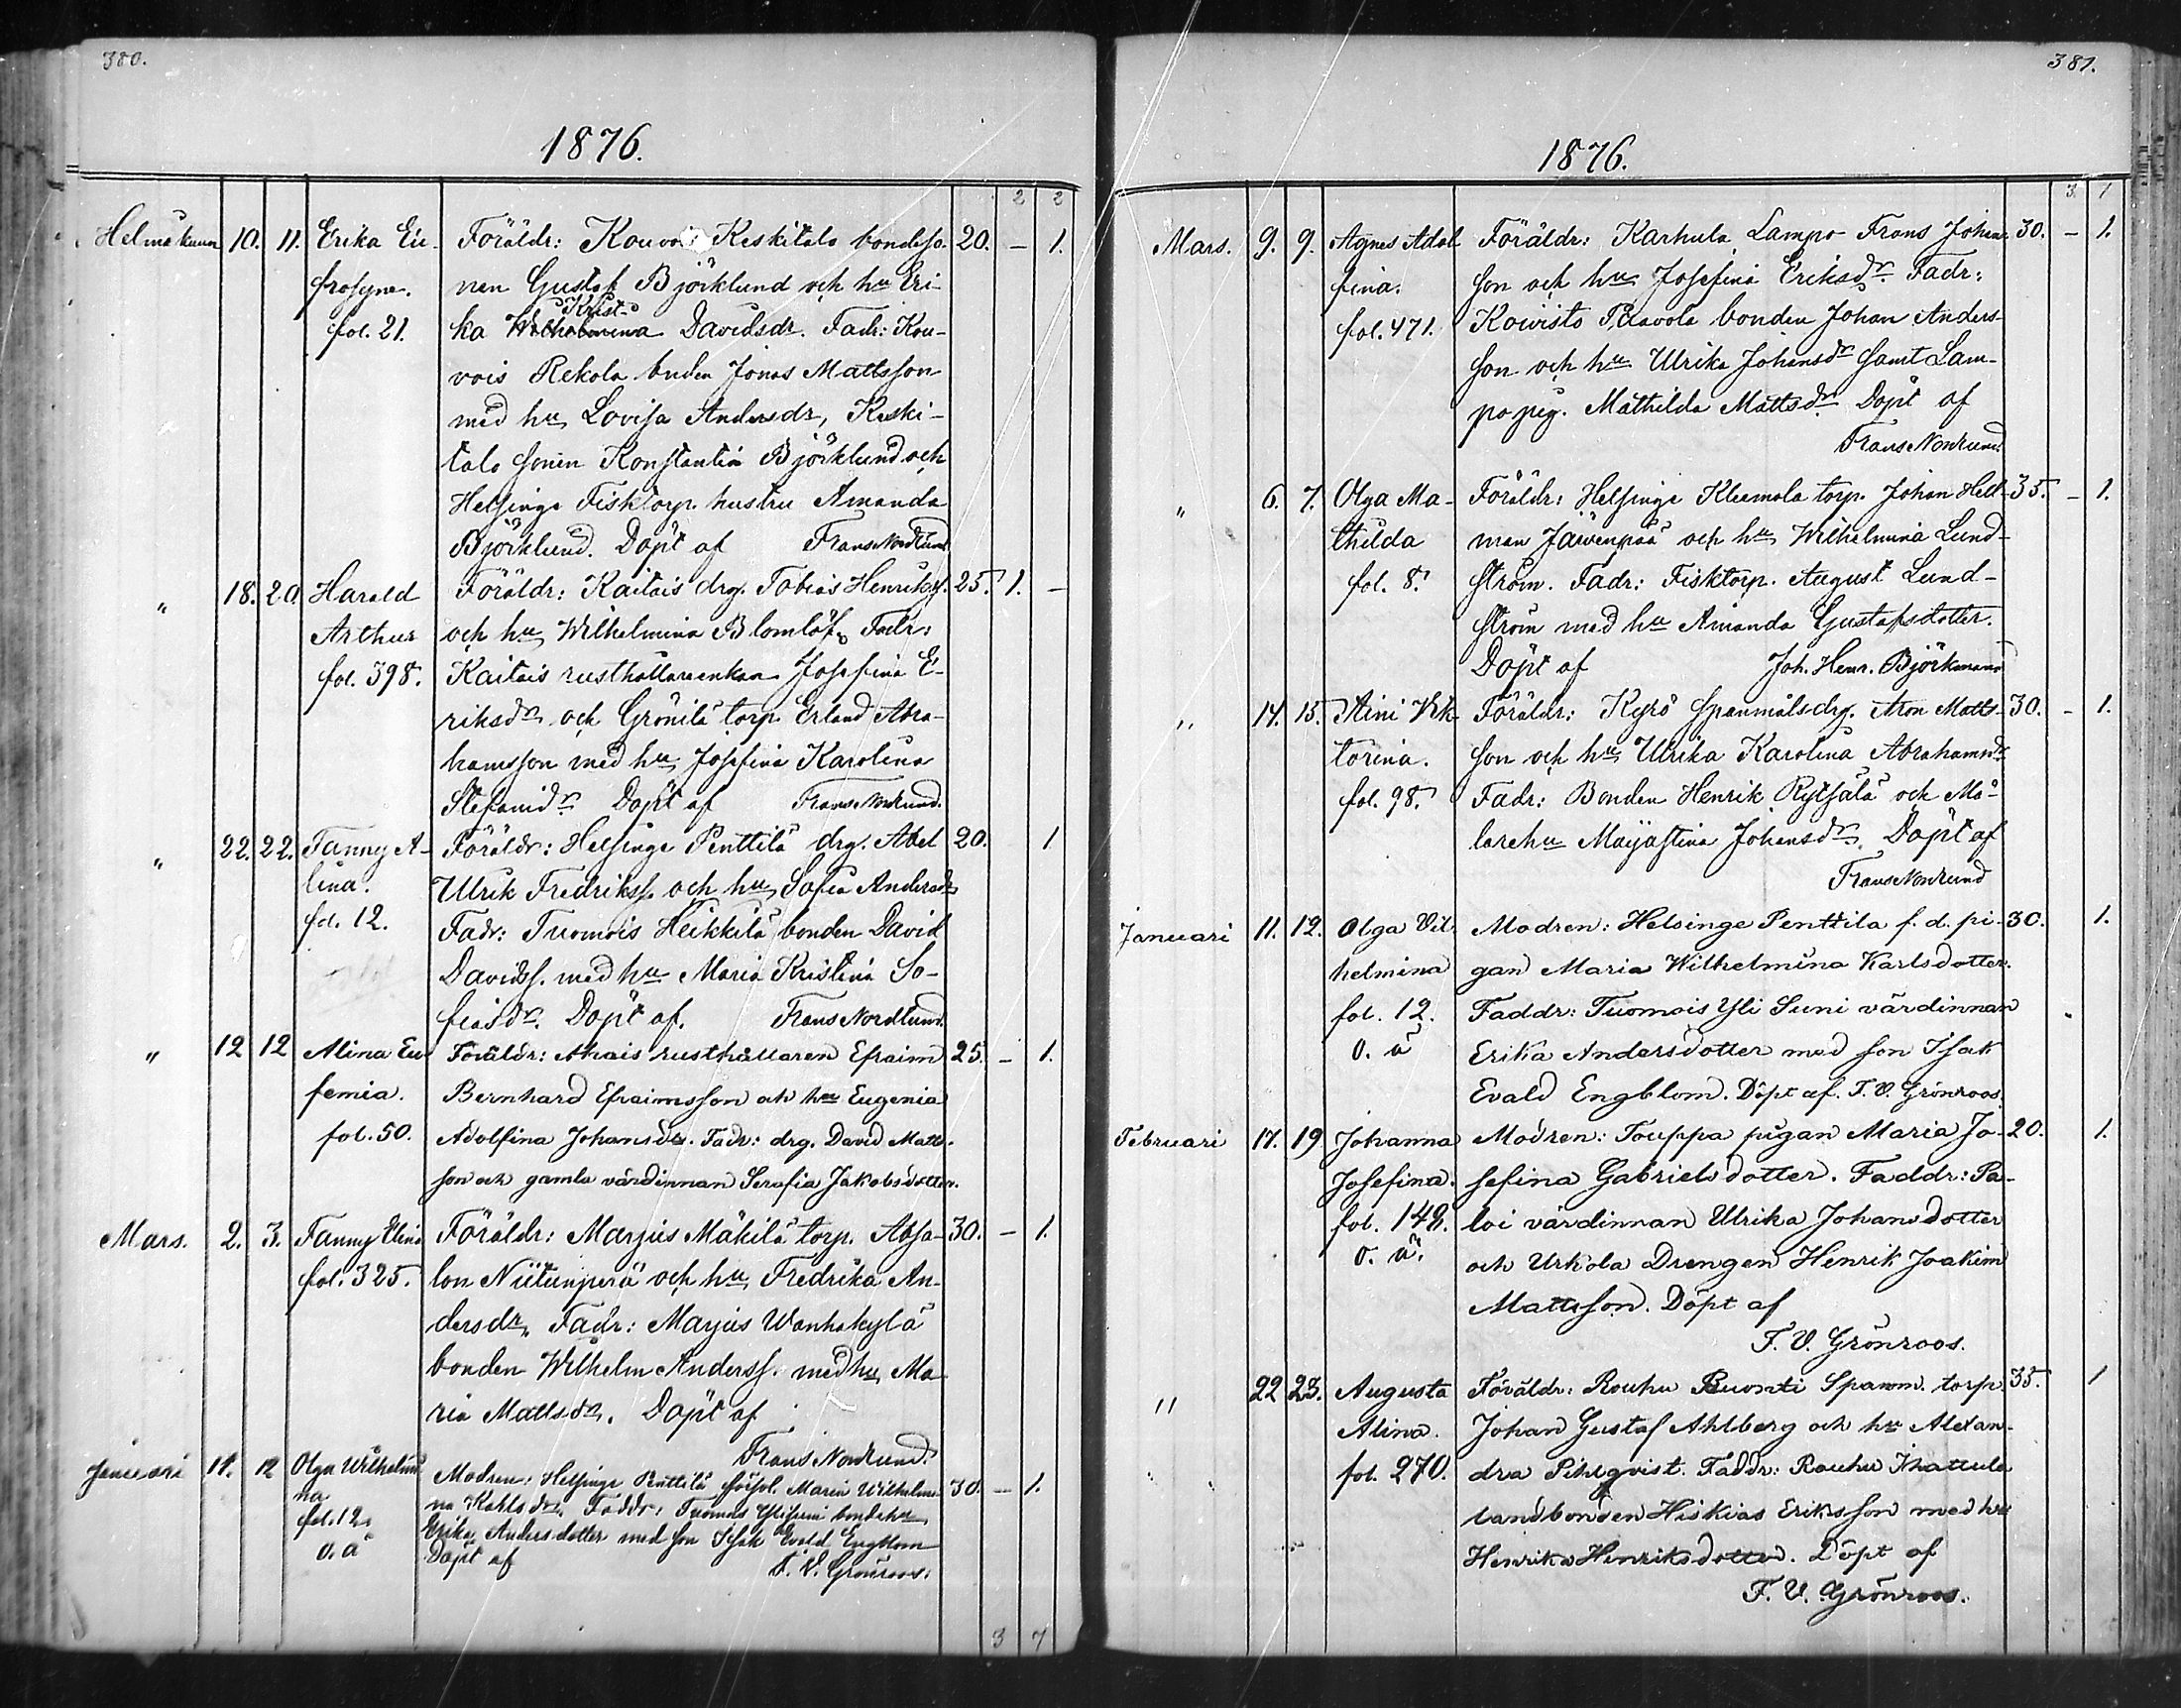 380.
1876.
2 2
Helmikuun 10. 11. Erika Eu- Föräldr: Kouvois Keskitalo bondeso- 20. – 1.
frosyne. nen Gustaf Björklund och hu Eri-
Krist-
fol. 21. ka Wilhelmina Davidsdr. Fadr: Kou-
vois Rekola bnden Jonas Mattsson
med hu Lovisa Andersdr, Keski-
talo sonen Konstantin Björklund och
Helsinge Fisktorp. hustru Amanda
Björklund. Döpt af Frans Nordlund
" 18. 20. Harald Föräldr: Kaitais drg. Tobias Henrikss. 25. 1. –
Arthur och hu Wilhelmina Blomlöf. Fadr:
fol. 398. Kaitais rusthållareenkan Josefina E-
riksdr och Grönilä torp. Erland Abra-
hamsson med hu Josefina Karolina
Stefanidr Döpt af Frans Nordlund.
" 22. 22. Fanny A- Föräldr: Helsinge Penttilä drg. Abel 20. 1
lina. Ulrik Fredrikss. och hu Sofia Andersdr
fol. 12. Fadr: Tuomois Heikkilä bonden David
Davidss. med hu Maria Kristina So-
fiasdr. Döpt af. Frans Nordlund.
" 12 12 Alina Eu- Föräldr: Ahais rusthållaren Efraim 25. – 1.
femia. Bernhard Efraimsson och hu Eugenia
fol. 50. Adolfina Johansdr. Fadr: drg. David Matts-
son och gamla värdinnan Serafia Jakobsdotter.
Mars. 2. 3. Fanny Elina Föräldr: Marjus Mäkilä torp. Absa- 30. – 1.
fol. 325. lon Niitunperä och hu Fredrika An-
dersdr, Fadr: Marjus Wanhakylä
bonden Wilhelm Anderss. med hu Ma-
ria Mattsdr. Döpt af
Frans Nordlund.
Januari 11. 12 Olga Wilhelmi- Modren: Helsinge Penttilä Maria Wilhelmi- 30. – 1.
na na Kahlsdr. Faddr: Tuomois Ylisuni bondehu
fol. 12. Erika Andersdotter med son Isak Evald Engblom
o. ä Döpt af F. V. Grönroos.
3 7
381.
1876.
3. 1
Mars. 9. 9. Agnes Adol- Föräldr: Karhula Lampo Frans Johans- 30. – 1.
fina. son och hu Josefina Eriksdr. Fadr:
fol. 471. Kowisto Paavola bonden Johan Anders-
son och hu Ulrika Johansdr samt Lam-
po pig. Mathilda Mattsdr Döpt af
Frans Nordlund.
" 6. 7. Olga Ma- Föräldr: Helsinge Kleemola torp. Johan Hell- 35. – 1.
thilda man Järvenpää och hu Wilhelmina Lund-
fol. 8. ström. Fadr: Fisktorp. August Lund-
ström med hu Amanda Gustafsdotter.
Döpt af Joh. Henr. Björkman
" 14. 15. Aini Vik- Föräldr: Kyrö spanmålsdrg. Aron Matts- 30. – 1.
torina. son och hu Ulrika Karolina Abrahamsdr
fol. 98. Fadr: Bonden Henrik Rytsälä och Må-
larehu Maijastina Johansdr. Döpt af
Frans Nordlund
Januari 11. 12. Olga Vil- Modren: Helsinge Penttila f. d. pi- 30. 1.
helmina gan Maria Wilhelmina Karlsdotter.
fol. 12. Faddr: Tuomois Yli Suni värdinnan
o. ä Erika Andersdotter med son Isak
Evald Engblom. Döpt af. F. V. Grönroos.
Februari 17. 19 Johanna Modren: Touppa pigan Maria Jo- 20. 1.
Josefina. sefina Gabrielsdotter. Faddr: Pa-
fol. 149. loi värdinnan Ulrika Johansdotter
o. ä. och Urkola Drengen Henrik Joakim
Mattsson. Döpt af
F. V. Grönroos.
" 22 23. Augusta Föräldr: Rouhu Buonti Spanm. torp 35. 1
Alina. Johan Gustaf Ahlberg och hu Alexan-
fol. 270. dra Pihlqvist. Faddr: Rouhu Khattula
landbonden Hiskias Eriksson med hu
Henrika Henriksdotter. Döpt af
F. V. Grönroos.